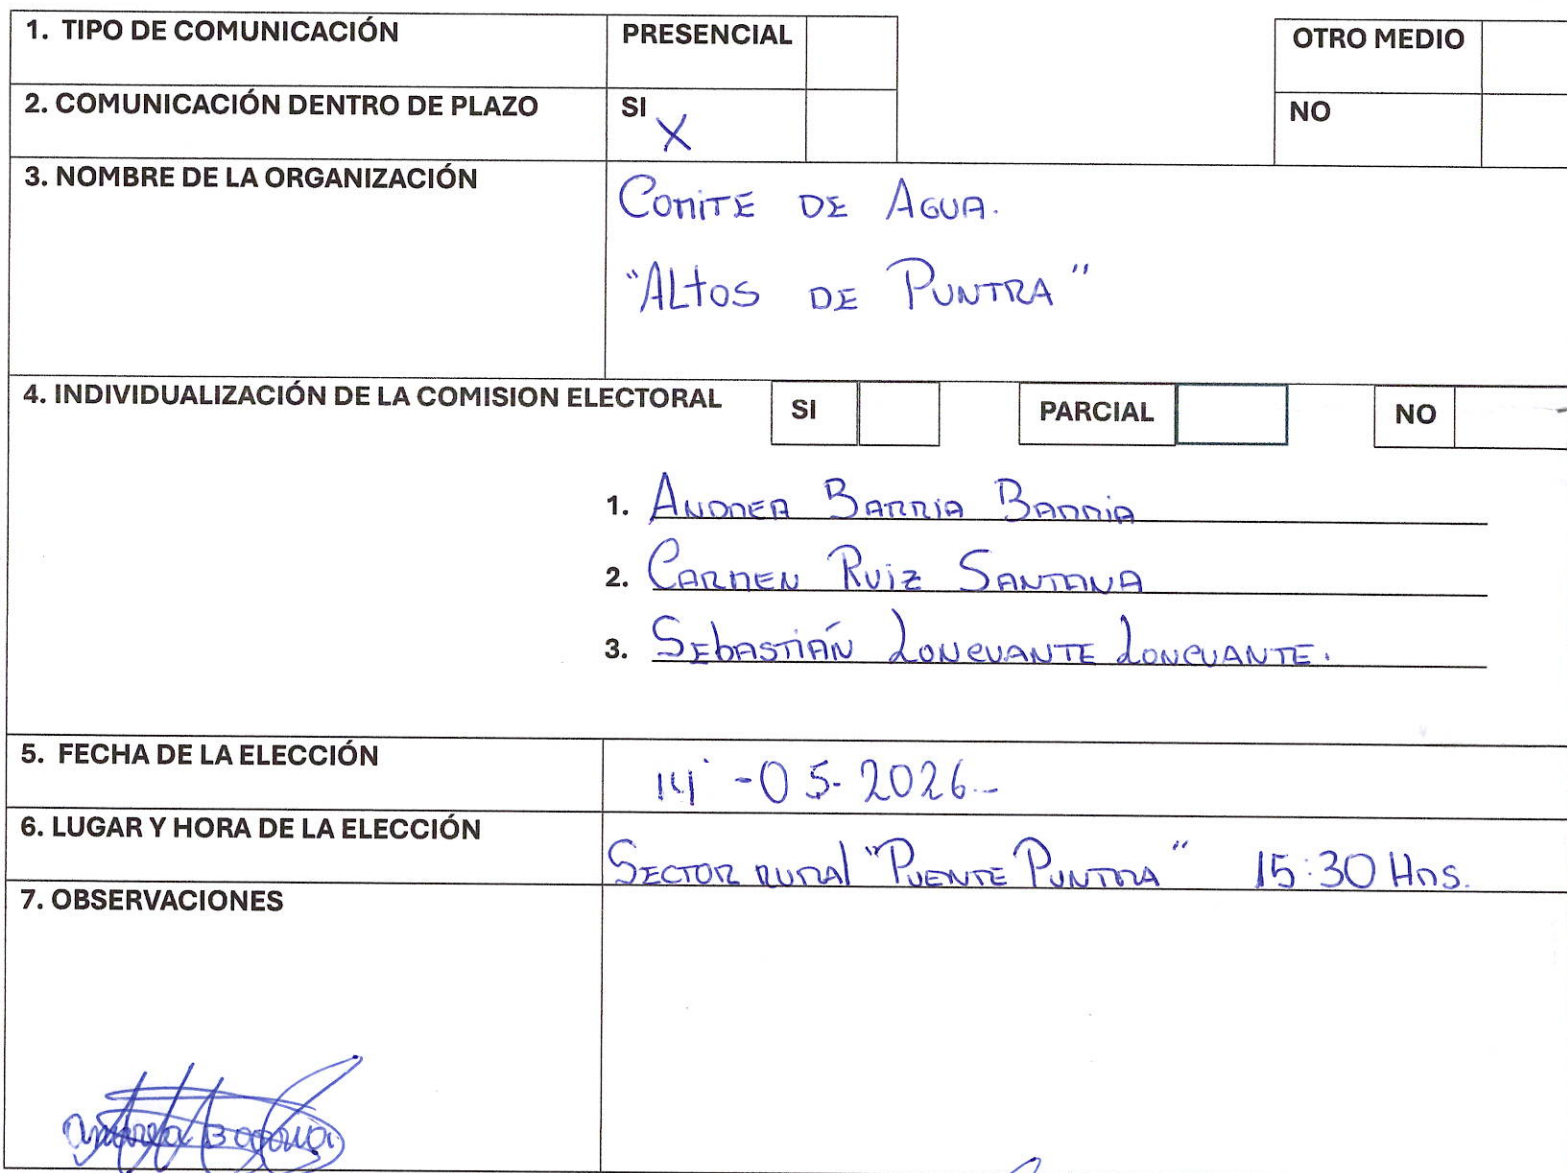 1. TIPO DE COMUNICACIÓN PRESENCIAL OTRO MEDIO
2. COMUNICACIÓN DENTRO DE PLAZO SI X NO
3. NOMBRE DE LA ORGANIZACIÓN COMITE DE AGUA.
"ALTOS DE PUNTRA"
4. INDIVIDUALIZACIÓN DE LA COMISION ELECTORAL SI PARCIAL NO
1. ANDREA BARRIA BARRIA
2. CARMEN RUIZ SANTANA
3. SEBASTIÁN LONCUANTE LONCUANTE.
5. FECHA DE LA ELECCIÓN 14-05-2026.-
6. LUGAR Y HORA DE LA ELECCIÓN SECTOR RURAL "PUENTE PUNTRA" 15:30 HRS.
7. OBSERVACIONES